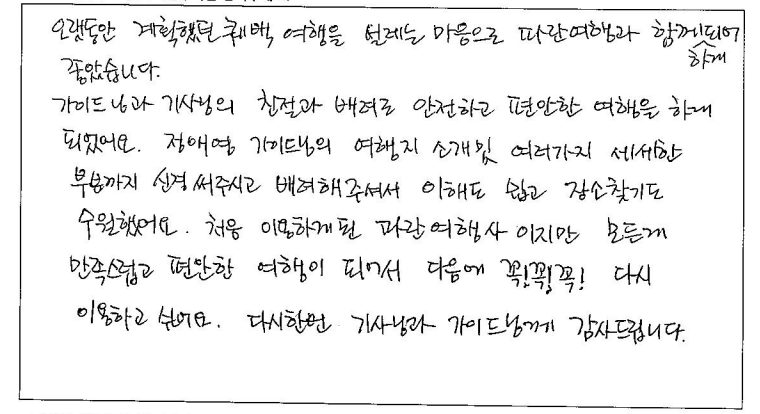 오랫동안 계획했던 퀘백 여행을 설레는 마음으로 파란여행과 함께 하게 되어
좋았습니다.
가이드님과 기사님의 친절과 배려로 안전하고 편안한 여행을 하게
되었어요. 정애영 가이드님의 여행지 소개및 여러가지 세세한
부분까지 신경써주시고 배려해주셔서 이해도 쉽고 장소찾기도
수월했어요. 처음 이용하게된 파란여행사 이지만 모든게
만족스럽고 편안한 여행이 되어서 다음에 꼭!꼭!꼭! 다시
이용하고 싶어요. 다시한번 기사님과 가이드님께 감사드립니다.